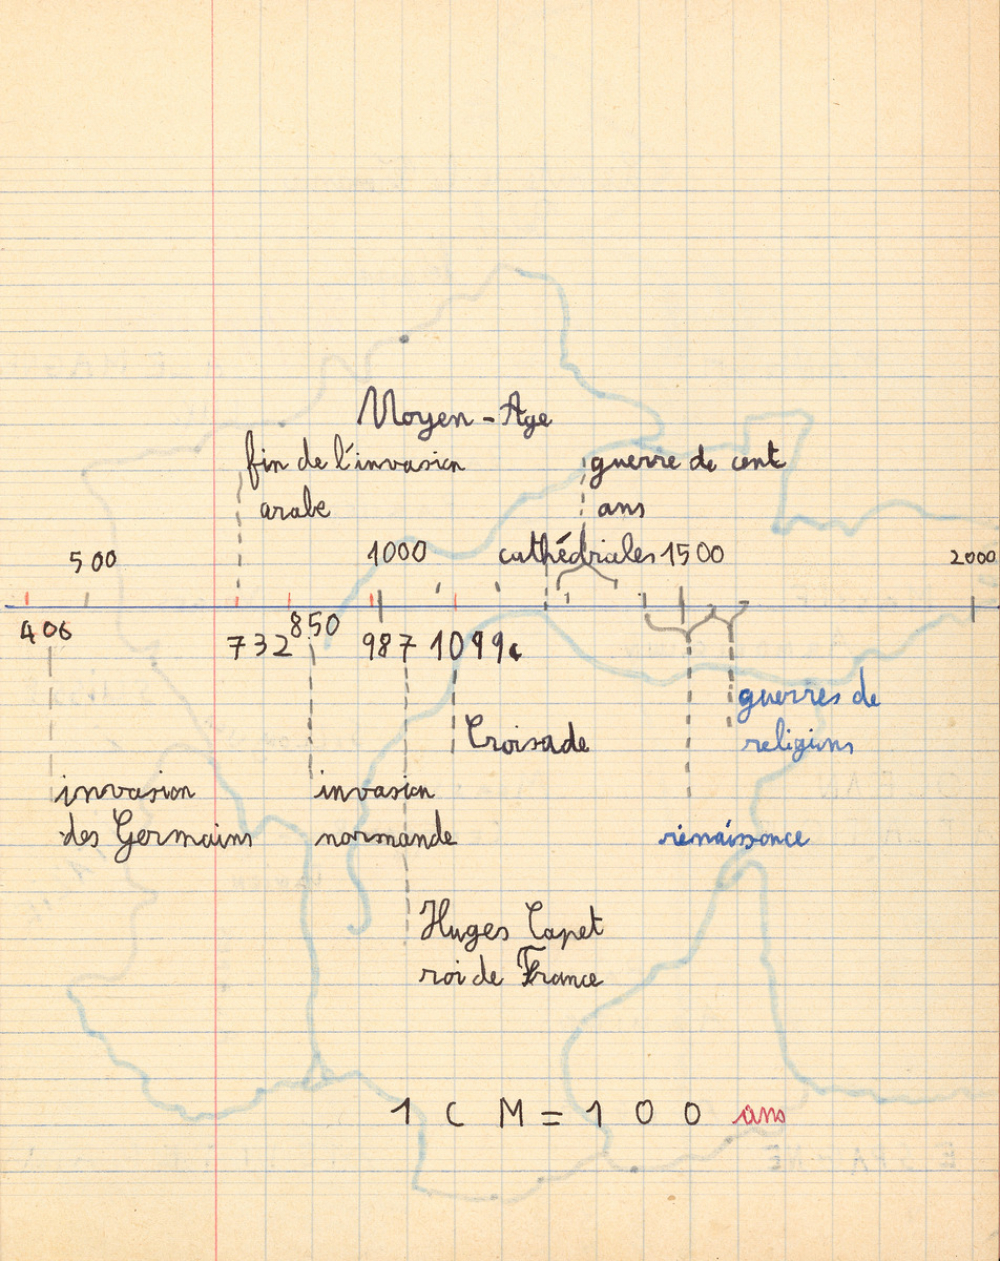 Moyen-Age
fin de l'invasion
arabe
guerre de cent
ans
500
1000
cathédriales
1500
2000
406
732
850
987
1099
guerres de
religions
Croisade
invasion
des Germains
invasion
normande
rénaissance
Huges Capet
roi de France
1 C M = 1 0 0 ans